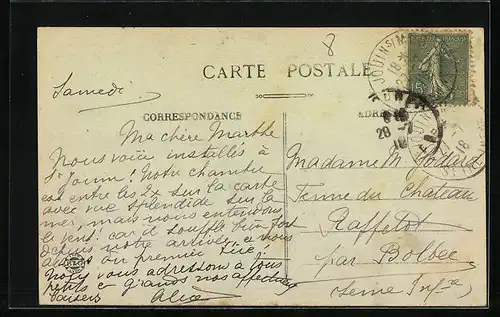 8
CARTE POSTALE
Samedi
CORRESPONDANCE
ADRE
Ma chère Marthe
Nous voici installés à
St Jouin! Notre chambre
est entre les Ex sur la carte
avec vue splendide sur la
mer, mais nous entendons
le vent! car il souffle bien fort
depuis notre arrivée, et nous
au premier
Nous vous adressons à tous
petits et grands nos affectueux
baisers Alice
Madame M. Godard
Ferme du Chateau
Raffetot
par Bolbec
(Seine Infre)